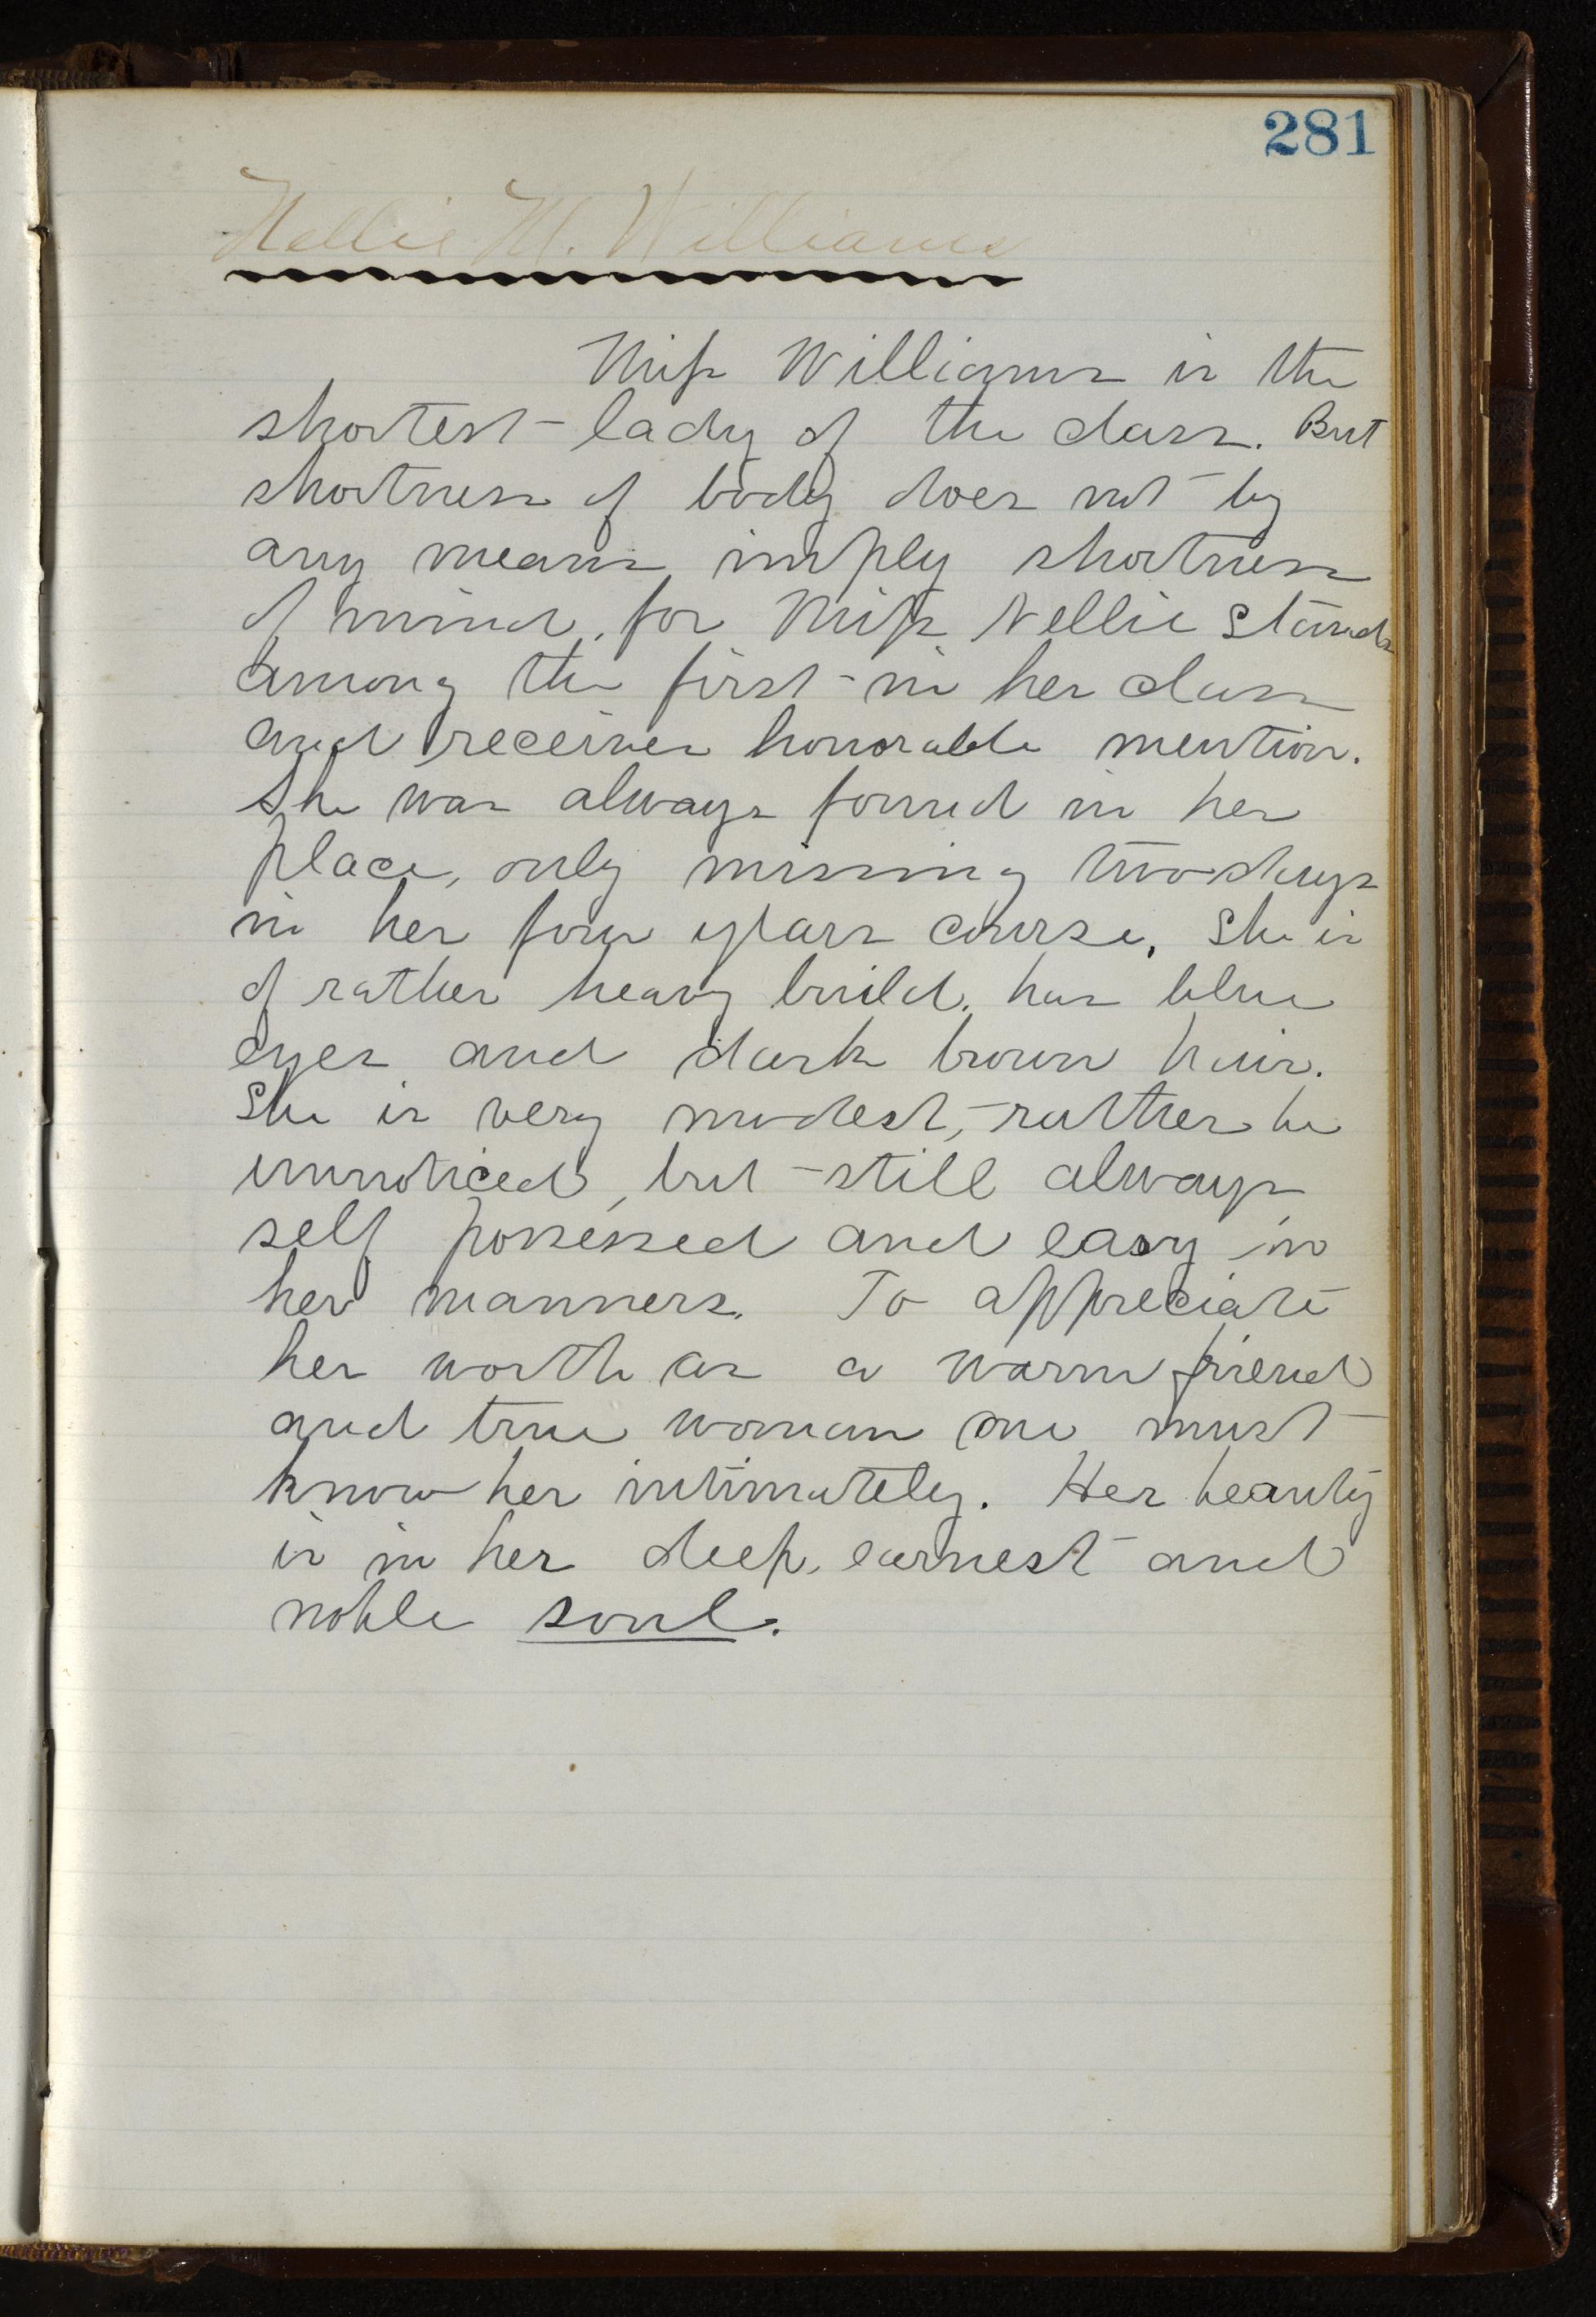 281
Nellie M. Williams
Miss Williams is the
shortest lady of the class. But
shortness of body does not by
any means imply shortness
of mind, for Miss Nellie stands
among the first in her class
and receives honorable mention.
She was always found in her
place, only missing two days
in her four years course. She is
of rather heavy build, has blue
eyes and dark brown hair.
She is very modest, rather be
unnoticed, but still always
self possessed and easy in
her manners. To appreciate
her worth as a warm friend
and true woman one must
know her intimately. Her beauty
is in her deep, earnest and
noble soul.